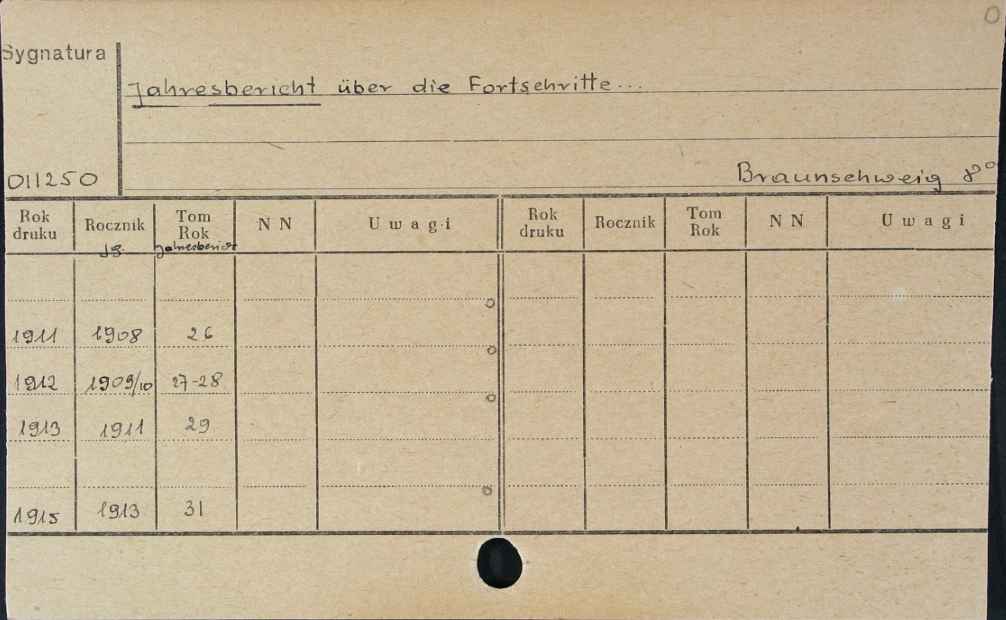 O
Sygnatura
Jahresbericht über die Fortschritte...
011250
Braunschweig 8°
Rok druku Rocznik Tom Rok N N Uwagi Rok druku Rocznik Tom Rok N N Uwagi
Jg. Jahresbericht
1911 1908 26
1912 1909/10 27-28
1913 1911 29
1915 1913 31